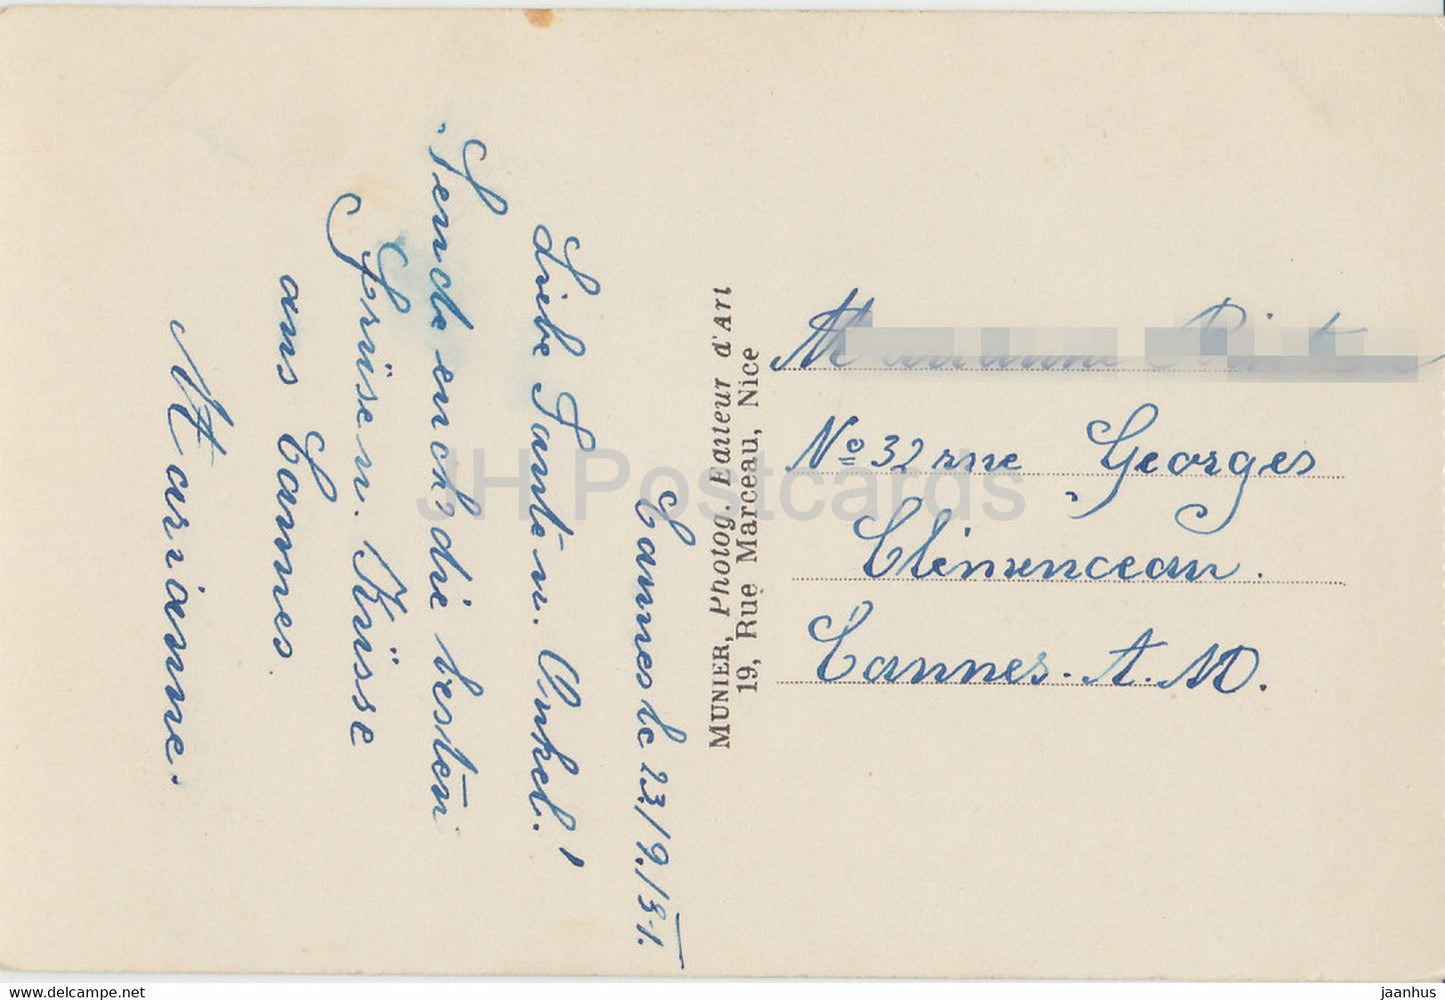 Cannes le 23./9./31.
Liebe Tante u. Onkel!
Sende euch die besten
Grüsse u. Küsse
aus Cannes
Marianne.
MUNIER, Photog. Editeur d'Art
19, Rue Marceau, Nice
No 32 rue Georges
Clémenceau.
Cannes. A. M.
JH Postcards
www.delcampe.net
jaanhus